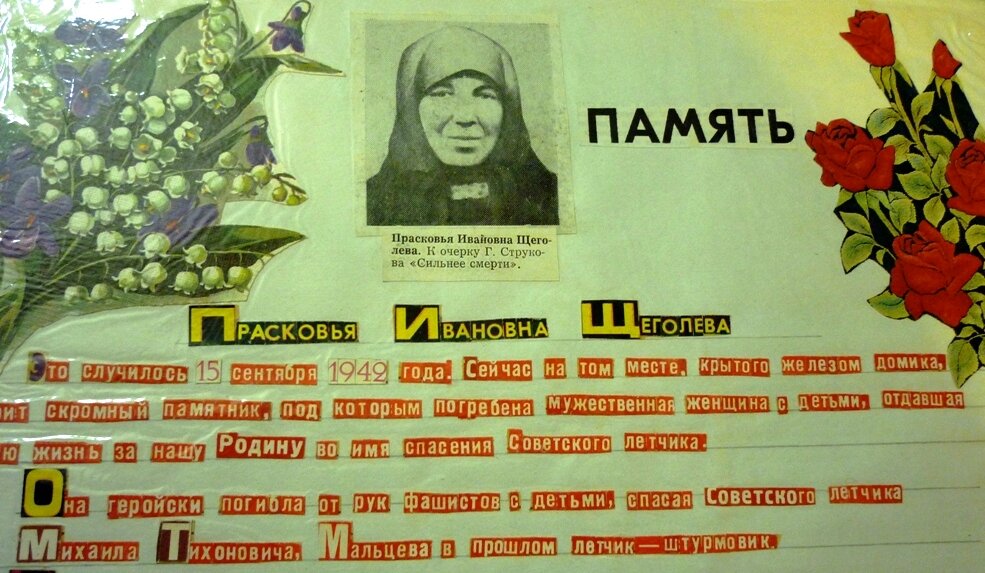 ПАМЯТЬ
Прасковья Ивановна Щего-
лева. К очерку Г. Струко-
ва «Сильнее смерти».
ПРАСКОВЬЯ ИВАНОВНА ЩЕГОЛЕВА
Это случилось 15 сентября 1942 года. Сейчас на том месте, крытого железом домика,
скромный памятник, под которым погребена мужественная женщина с детьми, отдавшая
жизнь за нашу Родину во имя спасения Советского летчика.
Она геройски погибла от рук фашистов с детьми, спасая Советского летчика
Михаила Тихоновича, Мальцева в прошлом летчик—штурмовик.